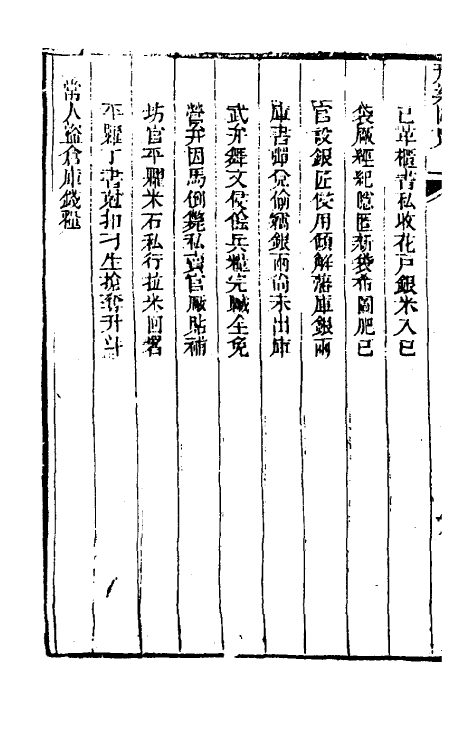 已革櫃書私收花戶銀米入已
袋厰經紀隱匿新袋希圖肥已
官設銀匠侵用傾解藩庫銀兩
庫書彈兌偷竊銀兩尚未出庫
武弁舞文侵餘兵糧完贓全免
營弁因馬倒斃私賣官厰貼補
坊官平糶米石私行拉米回署
平糶丁書尅扣刁生搶奪升斗
常人盜倉庫錢糧